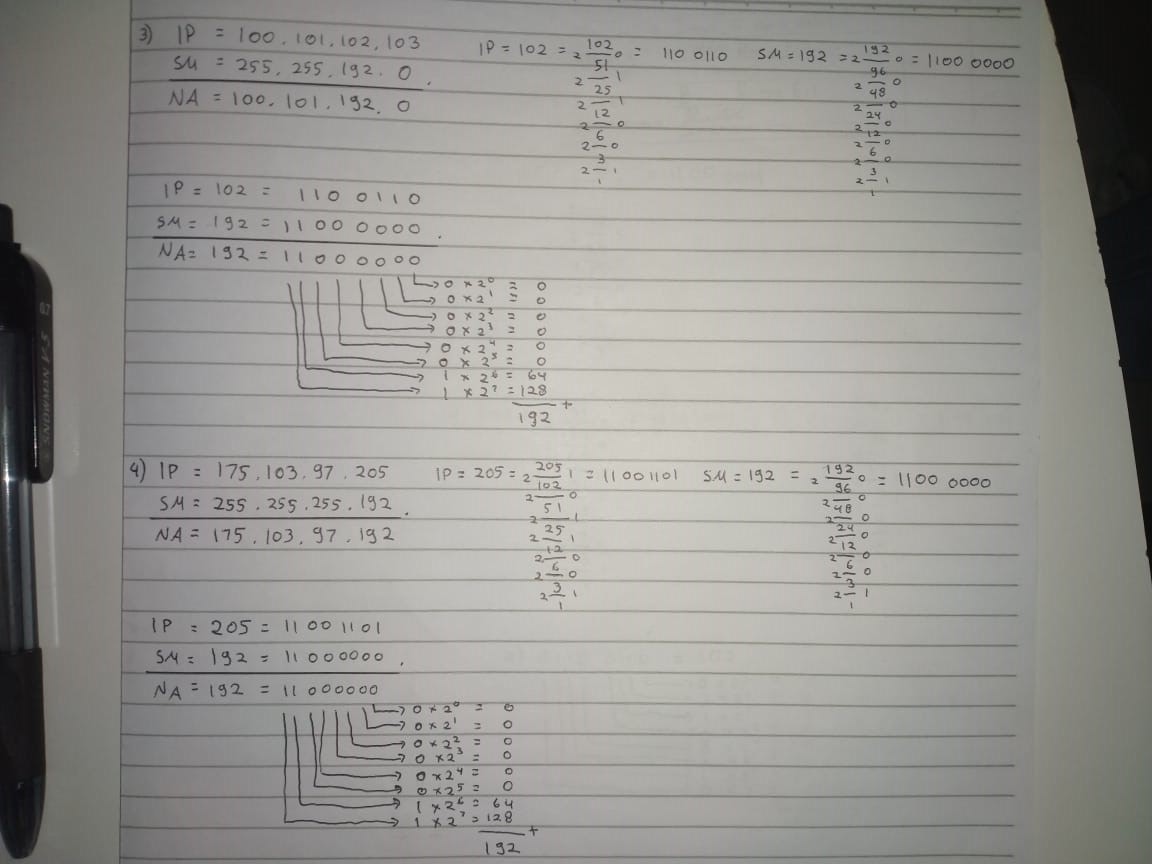 3) IP = 100.101.102.103
SM = 255.255.192.0
NA = 100.101.192.0
IP = 102 = 2 102 0 = 110 0110
2 51 1
2 25 1
2 12 0
2 6 0
2 3 1
1
SM = 192 = 2 192 0 = 1100 0000
2 96 0
2 48 0
2 24 0
2 12 0
2 6 0
2 3 1
1
IP = 102 = 110 0110
SM = 192 = 1100 0000
NA = 192 = 11000000
0 × 2⁰ = 0
0 × 2¹ = 0
0 × 2² = 0
0 × 2³ = 0
0 × 2⁴ = 0
0 × 2⁵ = 0
1 × 2⁶ = 64
1 × 2⁷ = 128
+
192
4) IP = 175.103.97.205
SM = 255.255.255.192
NA = 175.103.97.192
IP = 205 = 2 205 1 = 11001101
2 102 0
2 51 1
2 25 1
2 12 0
2 6 0
2 3 1
1
SM = 192 = 2 192 0 = 1100 0000
2 96 0
2 48 0
2 24 0
2 12 0
2 6 0
2 3 1
1
IP = 205 = 11001101
SM = 192 = 11000000
NA = 192 = 11000000
0 × 2⁰ = 0
0 × 2¹ = 0
0 × 2² = 0
0 × 2³ = 0
0 × 2⁴ = 0
0 × 2⁵ = 0
1 × 2⁶ = 64
1 × 2⁷ = 128
+
192
SNOWMAN